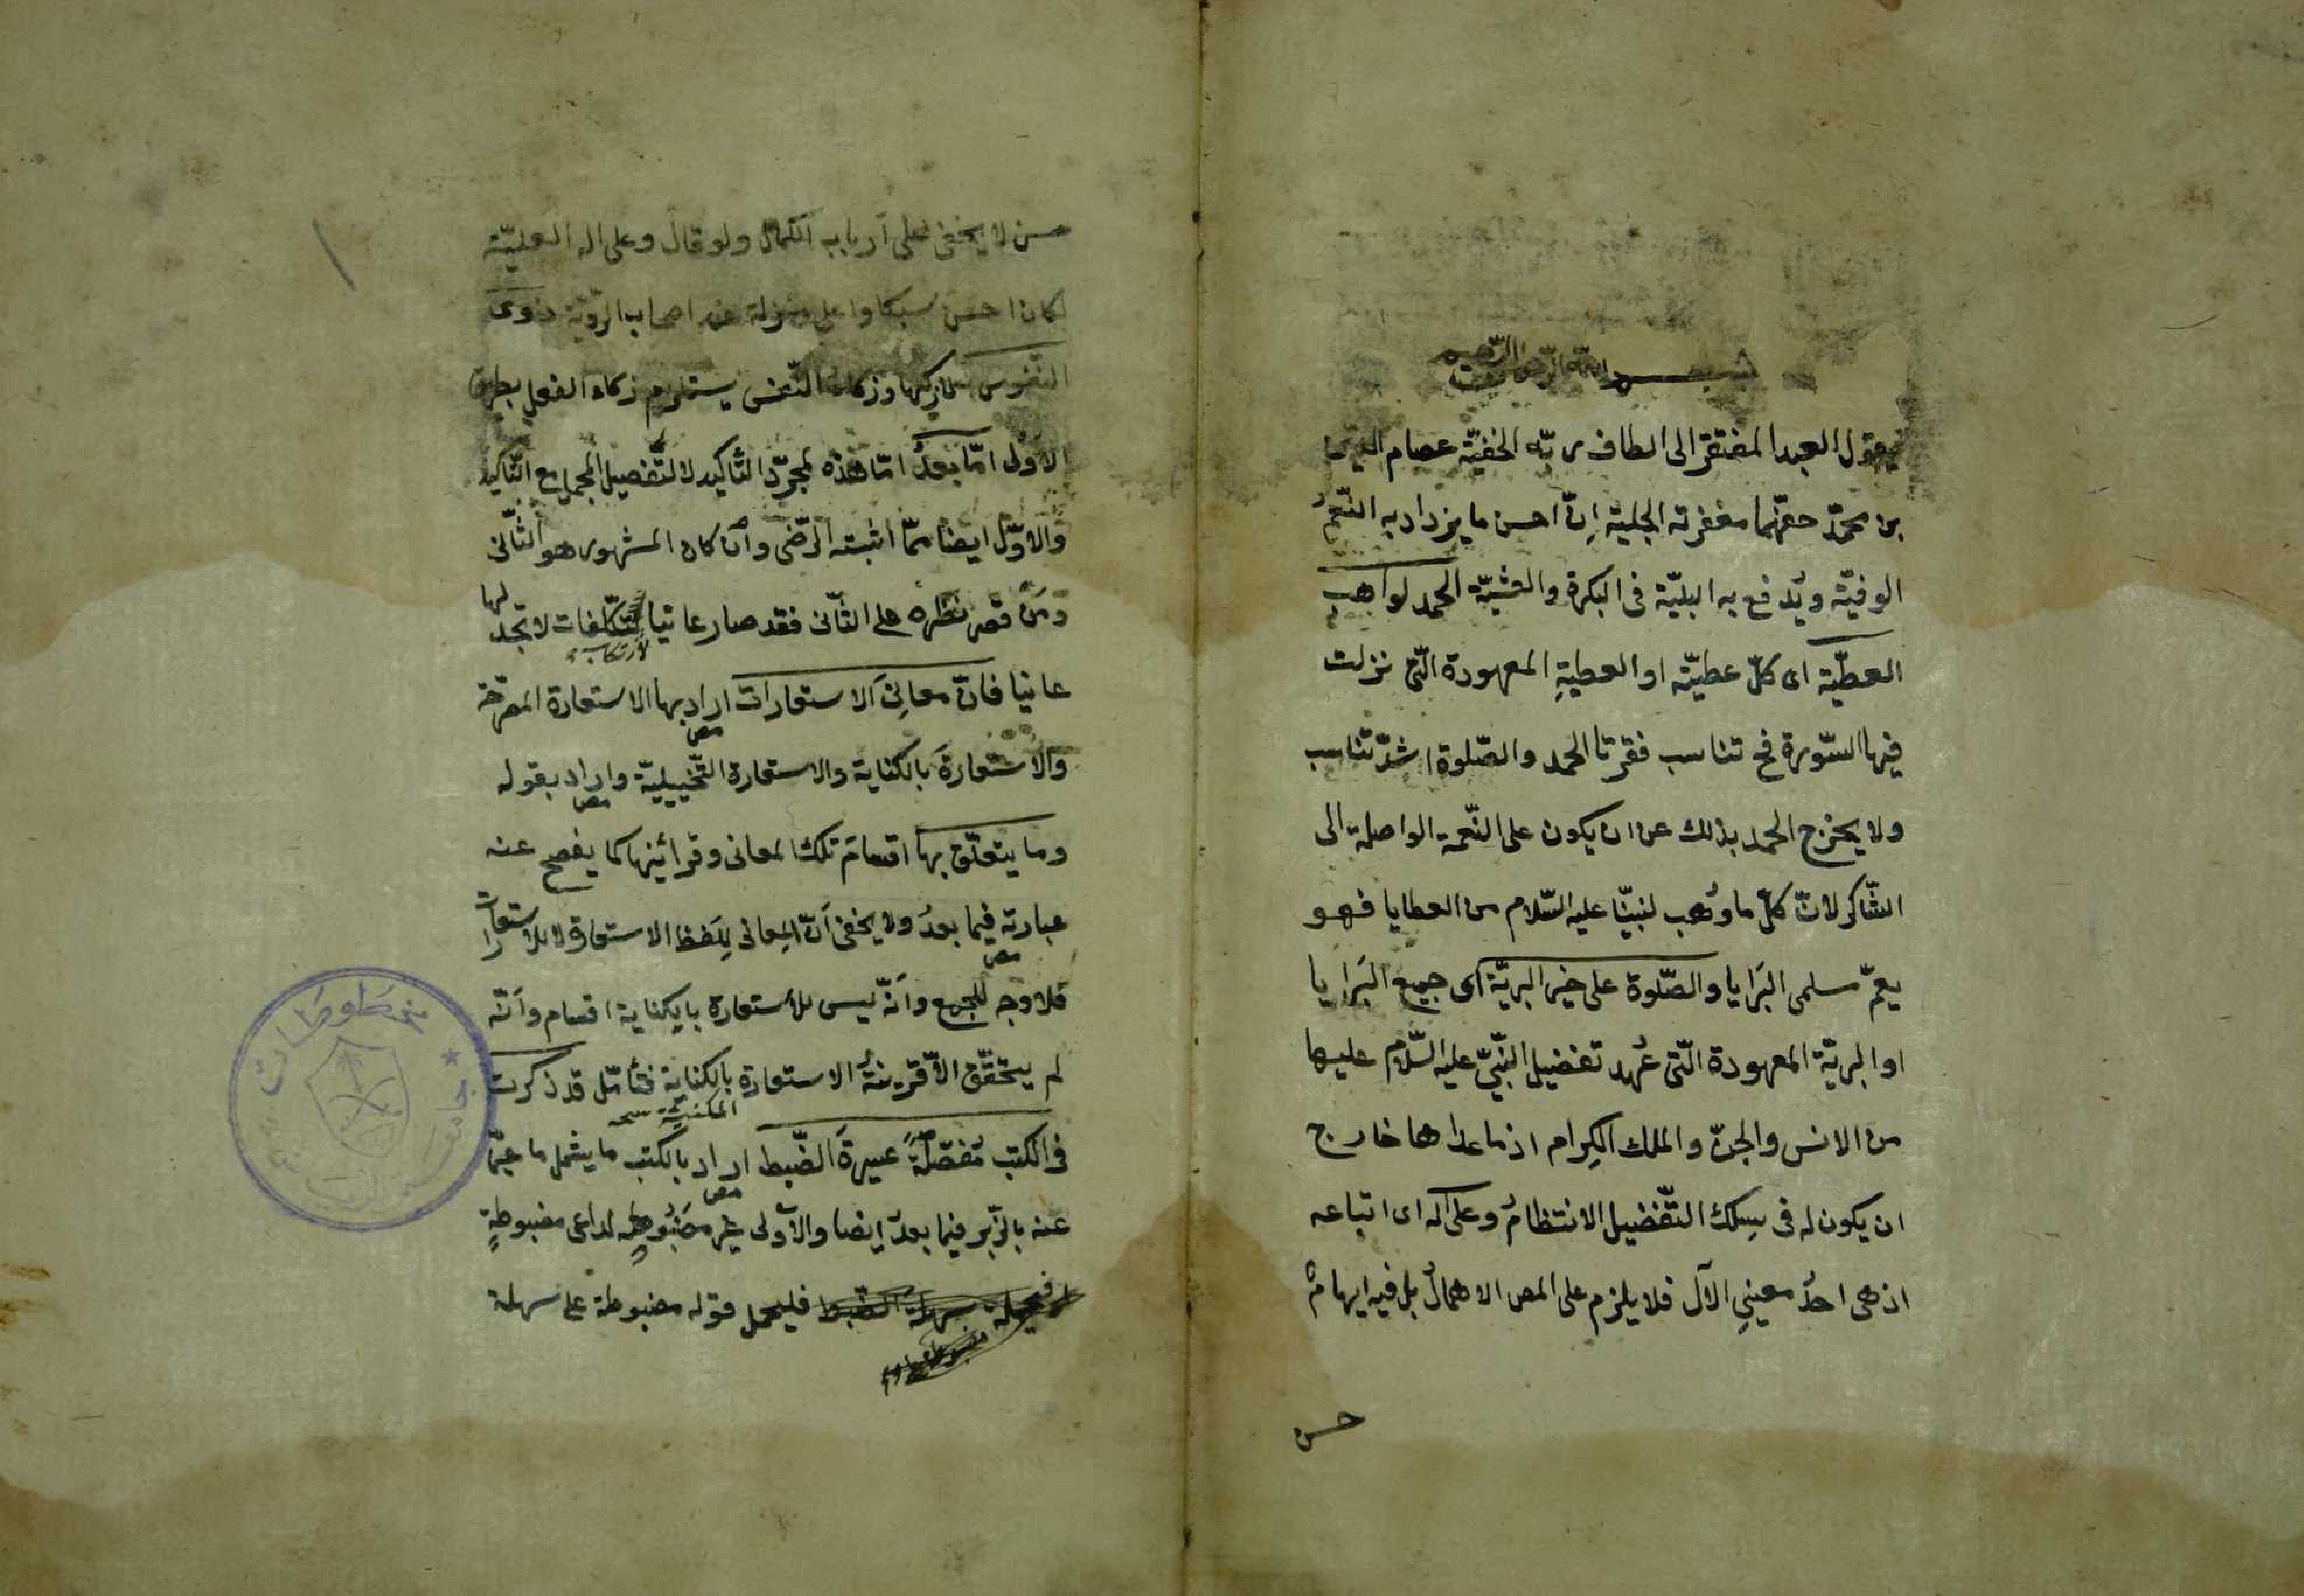 بسم الله الرحمن الرحيم
يقول العبد المفتقر الى الطاف ربّه الخفيّة عصام الدين
بن محمّد حفّهما مغفرته الجلية اِنّ احسن ما يزداد به النّعمُ
الوفيّة ويُدفع به البليّة فى البكرة والعشيّة الحمد لواهب
العطيّة اى كلّ عطيّته او العطيةِ المعهودة الّتى نزلت
فيها السّورة فح تناسب فقرتا الحمد والصّلوة اشدّ تناسب
ولا يخرج الحمد بذلك عن ان يكون على النّعمة الواصلة الى
الشّاكر لانّ كلّ ما وُهب لنبيّنا عليه السّلام من العطايا فهو
يعمّ مسلمى البَرَايا والصّلوة على خير البريّة اى جميع البَرَايا
او البريّة المعهودة الّتى عُهد تفضيل النّبىّ عليه السّلام عليها
من الانس والجنّ والملك الكِرام اذ ما عداها خارج
ان يكون له فى سِلك التّفضيل الانتظامُ وعلى آله اى اتباعه
اذ هى احدُ معنيىِ الآل فلا يلزم على المص الاهمالُ بل فيه ايهام
حسن
حسن لا يخفى على ارباب الكمال ولو قال وعلى اله العليّة
لكان احسن سبكا واعلى منزلة عند اصحاب الرويّة ذوى
النّفوس وزكاء النّفس يستلزم زكاء الفعل بطريق
الاولى امّا بعدُ امّا هذه لمجرّد التّأكيد لا لتفصيل المجمل مع التّاكيد
والاوّل ايضا ممّا اثبته الرّضى وان كان المشهور هو الثّانى
ومَن قصر نظره على الثّانى فقد صار عانيا لتكلّفات لا تجد لها
لارتكاب
عانيا فانّ معانِىَ الاستعارات اراد بها الاستعارة المصرّحة
مص
والاستعارةَ بالكناية والاستعارة التّخييليّة واراد بقوله
مص
وما يتعلّق بها اقسامَ تلك المعانى وقرائنها كما يفصح عنه
عبارته فيما بعدُ ولا يخفى اَنّ المعانى لِلَفظ الاستعارة لا للاستعارات
مص
فلا وجه للجمع واَنّه ليس للأستعارة بالكناية اقسام واَنّه
لم يتحقّق الاّ قرينةُ الاستعارة بالكناية فتأمّل قد ذكرت
المكنيّة نسخه
فى الكتب مُفصّلةً عسيرةَ الضّبط اراد بالكتب ما يشمل ما عبّر
مص
عنه بالزّبر فيما بعدُ ايضا والاَولى غير مضبُوطةٍ لداعى مضبوطةٍ
سهلة الضّبط فليحمل قوله مضبوطة على سهلة
مخطوطات